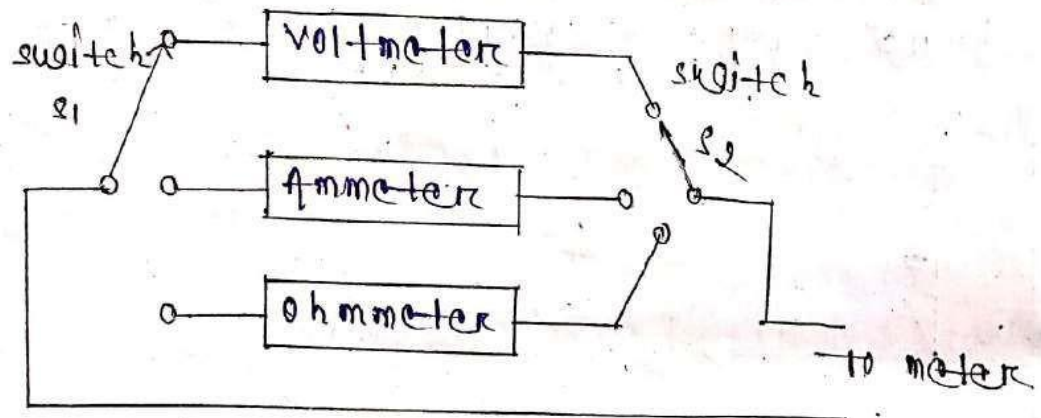 switch
S1
Voltmeter
switch
S2
Ammeter
Ohmmeter
To meter